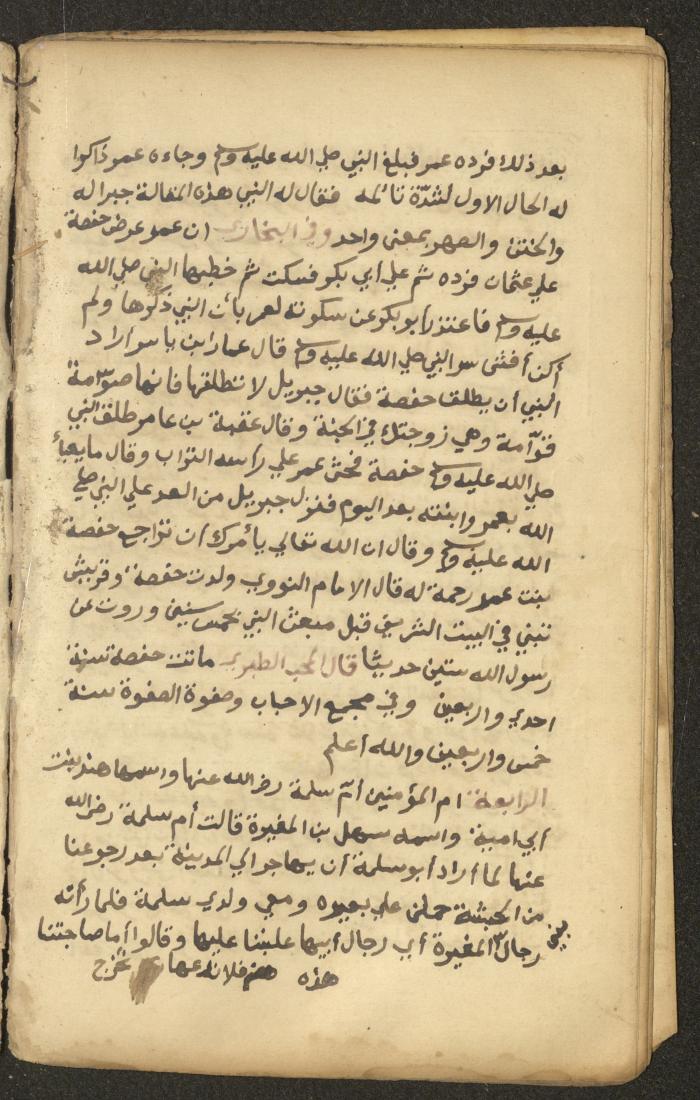 بعد ذلك فرده عمر فبلغ النبي صلي الله عليه وسلم وجاءه عمر ذاكرا
له الحال الاول لشدّة تائلمه فقال له النبي هذه المقالة جبرا له
والختن والصهر بمعني واحد وفي البخاري ان عمر عرض حفصة
علي عثمان فرده ثم علي أبي بكر فسكت ثم خطبها النبي صلي الله
عليه وسلم فاعتذر أبو بكر عن سكوته لعمر بأن النبي ذكرها ولم
أكن أفشي سر النبي صلي الله عليه وسلم قال عمار ابن ياسر أراد
النبي أن يطلق حفصة فقال جبريل لا تطلقها فانها صوّامة
قوّامة وهي زوجتك في الجنة وقال عقبة بن عامر طلق النبي
صلي الله عليه وسلم حفصة فحثي عمر علي رأسه التراب وقال ما يعبأ
الله بعمر وابنته بعد اليوم فنزل جبريل من الغد علي النبي صلي
الله عليه وسلم وقال ان الله تعالي يأمرك أن تراجع حفصة
بنت عمر رحمة له قال الامام النووي ولدت حفصة وقريش
تبني في البيت الشريف قبل مبعث النبي بخمس سنين وروت عن
رسول الله ستين حديثا قال المحب الطبري ماتت حفصة سنة
احدي واربعين وفي مجمع الاحباب وصفوة الصفوة سنة
خمس واربعين والله أعلم
الرابعة ام المؤمنين أم سلمة رضي الله عنها واسمها هند بنت
أبي امية واسمه سهل بن المغيرة قالت أم سلمة رضي الله
عنها لما أراد أبو سلمة أن يهاجر الي المدينة بعد رجوعنا
من الحبشة حملني علي بعيره ومعي ولدي سلمة فلما رأته
رجال بني المغيرة أي رجال أبيها غلبنا عليها وقالوا أما صاحبتنا
هذه